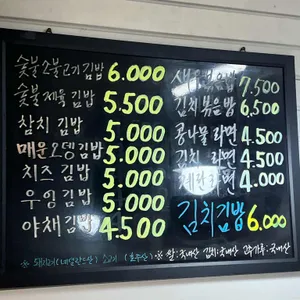 숯불소불고기김밥 6.000
숯불제육김밥 5.500
참치김밥 5.000
매운오뎅김밥 5.000
치즈김밥 5.000
우엉김밥 5.000
야채김밥 4.500
새우볶음밥 7.500
김치볶음밥 6,500
콩나물라면 4.500
김치 라면 4.500
계란라면 4.000
김치김밥 6.000
※ 쌀:국내산 김치:국내산 고추가루:국내산